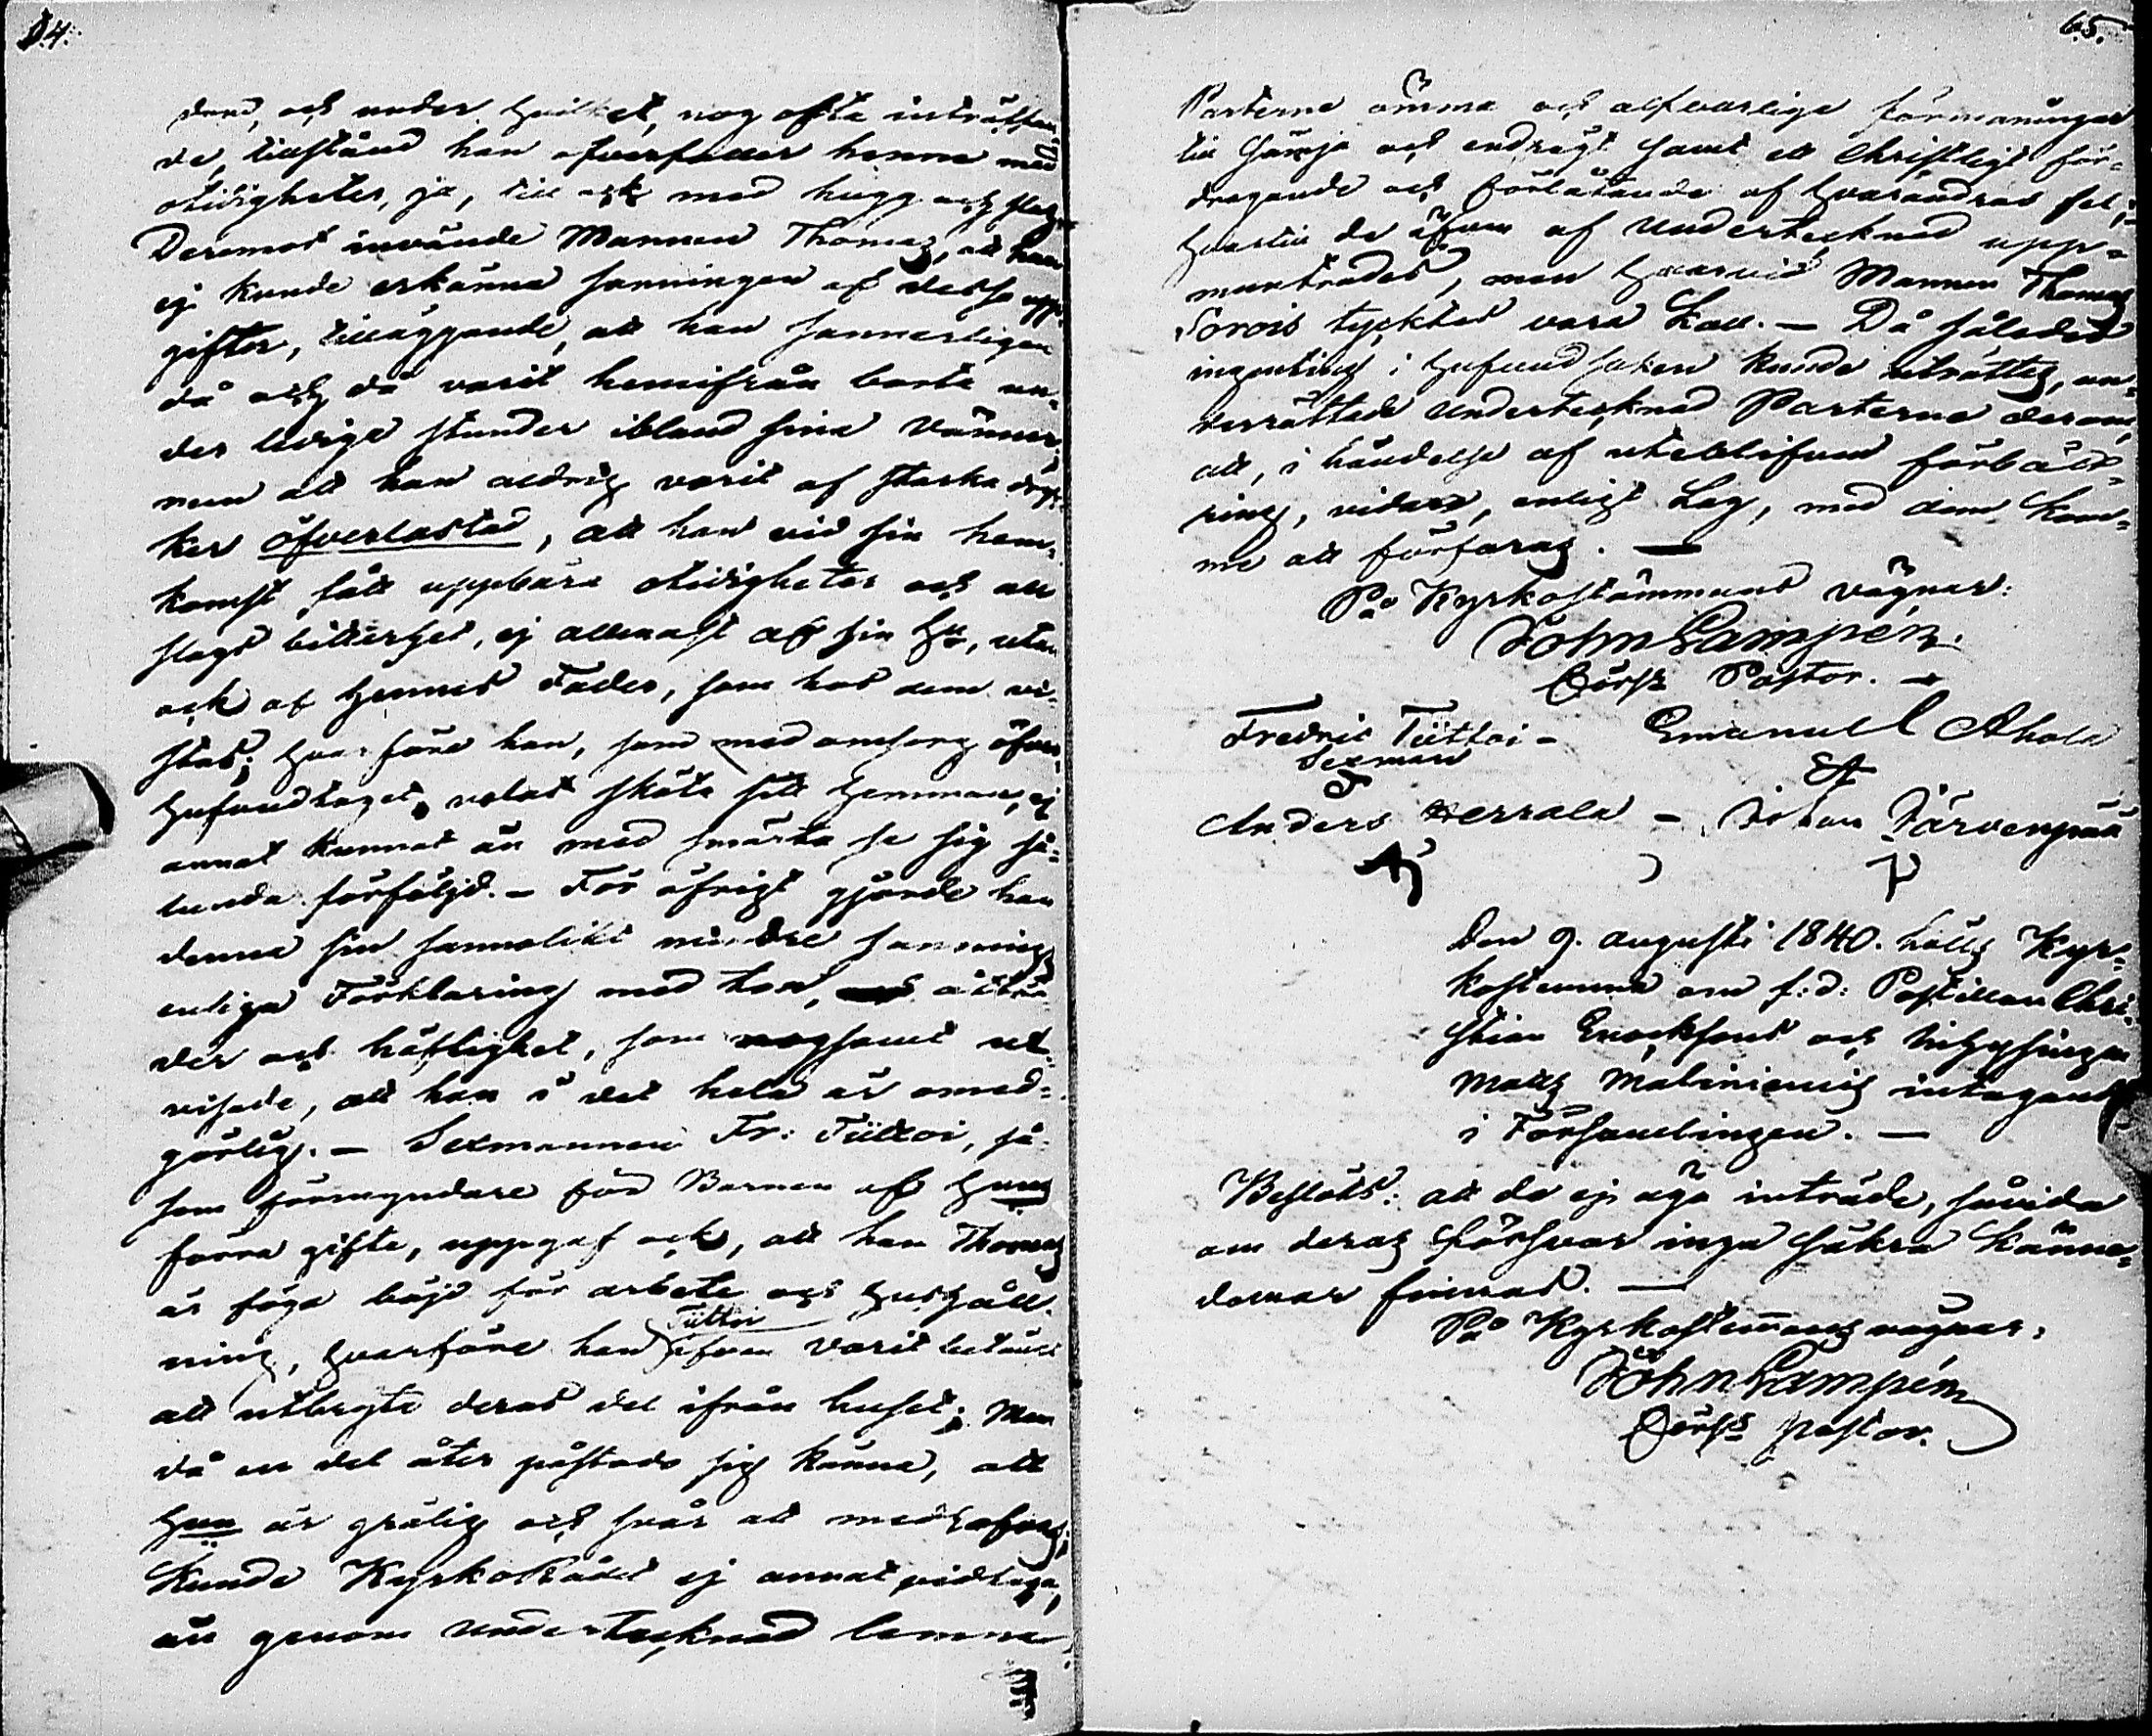 64.
dend, och under hvilket, nog ofta inträffan-
de, tillstånd han öfverfaller henne med
otidigheter, ja, till och med hugg och slag.
Deremot invände Mannen Thomas, att han
ej kunde erkänna sanningen af dessa upp-
gifter, tilläggande, att han sannerligen
då och då varit hemifrån borta un-
der lediga stunder ibland sina vänner,
men att han aldrig varit af starka dryc-
ker öfverlastad, att han vid sin hem-
komst fått uppbära otidigheter och all
slags bitterhet, ej allenast af sin H:u, utan
ock af hennes Fader, som hos dem vi-
stas; hvarföre han, som med omsorg öfver
hufvudtaget velat sköta sitt hemman, ej
annat kunnat än med smärta se sig så-
lunda förföljd. - För öfrigt gjorde han
denna sin sannolikt mindre sannings
enliga Förklaring med ton, åtbör
der och häftighet, som nogsamt ut-
visade, att han i det hela är omed-
görlig. - Sexmannen Fr: Tüttoi, så-
som förmyndare för Barnen af hans
förra gifte, uppgaf ock, att han Thomas
är föga böjd för arbete och hushåll-
ning, hvarföre han Tüttoi äfven varit betänkt
att utbryta deras del ifrån huset; Men
då en del åter påstodo sig känna, att
hon är grälig och svår att medhafvas;
kunde KyrkoRådet ej annat vidtaga,
än genom undertecknad lemna
65.
Parterne ömma och alfvarliga förmaningar
till sämja och endrägt samt ett Christligt för-
dragande och förlåtande af hvarandras fel;
hvartill de äfven af Undertecknad upp-
muntrades, men hvarvid Mannen Thomas
Sorois tycktes vara kall. — Då således
ingenting i hufvudsaken kunde uträttas, un-
derrättade undertecknad Parterne derom,
att, i händelse af utebliven förbätt-
ring, vidare, enligt Lag, med dem kom-
me att förfaras. —
På Kyrkostämmans vägnar:
John Lampén.
Börsk Pastor. -
Fredric Tüttoi - Emanuel Ahola
Sexman
Anders Herrala - Johan Järvenpää
Den 9. augusti 1840. hölls Kyr-
kostemma om f:d: Postillon Chri-
stian Enocksons och Inhysingen
Matts Maliniemis intagande
i Församlingen. —
Beslöts: att de ej äga inträde, såvida
om deras försvar inga säkra känne-
domar finnas. —
På Kyrkostemmans vägnar:
John Lampén
Börsk pastor.